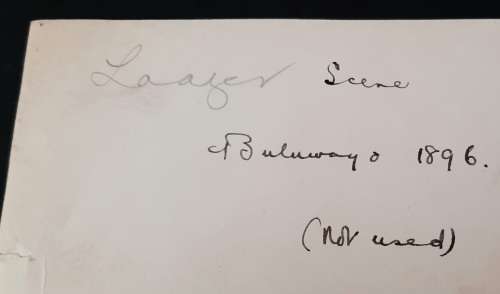 Laager Scene
Buluwayo 1896.
(Not used)